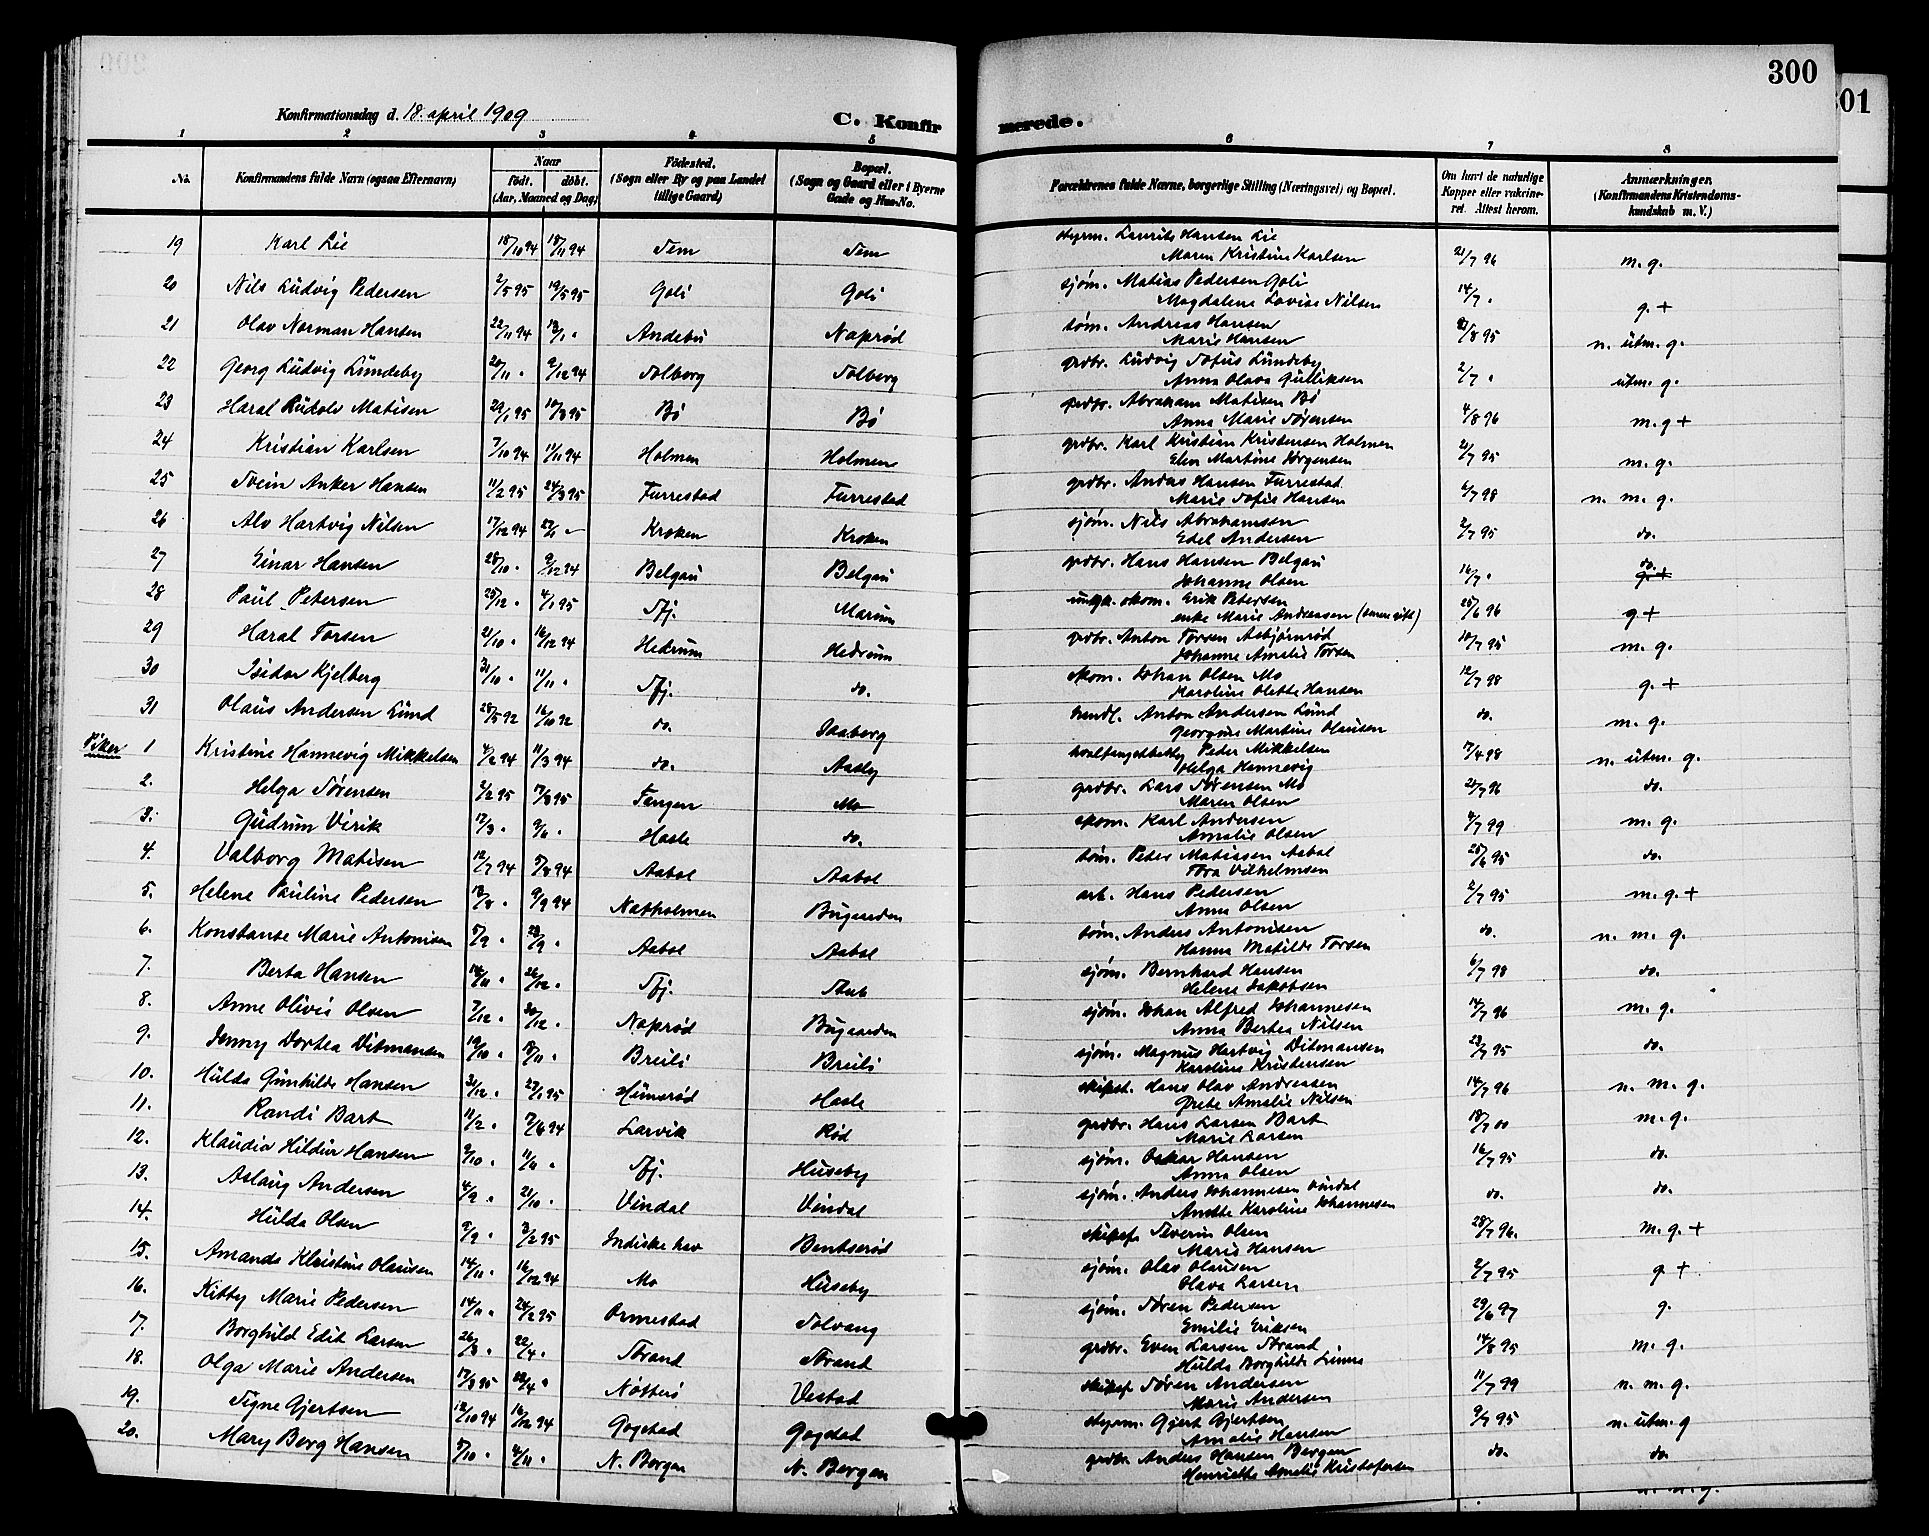 300
301
Konfirmationsdag d. 18. april 1909
C. Konfirmerede.
1 2 3 4 5 6 7 8
No. Konfirmandens fulde Navn (ogsaa Efternavn) Naar født. døbt. (Aar, Maaned og Dag) Födested. (Sogn eller By og paa Landet tillige Gaard) Bopæl. (Sogn og Gaard eller i Byerne Gade og Hus-No. Forældrenes fulde Navne, borgerlige Stilling (Næringsvei) og Bopæl. Om havt de naturlige Kopper eller vakcineret. Attest herom. Anmærkninger. (Konfirmandens Kristendomskundskab m. V.)
19 Karl Lie 18/10 94 18/11 94 Sem Sem styrm. Laurits Hansen Lie 21/7 96 m. g.
Maren Kristine Karlsen
20 Nils Ludvig Pedersen 2/5 95 19/5 95 Goli Goli sjøm. Matias Pedersen Goli 14/7 " g. +
Magdalene Lovise Nilsen
21 Olav Norman Hansen 22/11 94 Andebu Naprød tøm. Andreas Hansen n. utm. g.
Marie Hansen
22 Georg Ludvig Lundeby 9/12 94 Solberg Solberg grdbr. Ludvig Sofus Lundeby 2/7 " utm. g.
Anna Olava Gulliksen
23 Haral Rudolv Matisen 29/1 95 10/3 95 Bø Bø grdbr. Abraham Matisen Bø 4/8 96 m. g +
Anna Marie Sørensen
24 Kristian Karlsen 7/10 94 11/11 94 Holmen Holmen grdbr. Karl Kristian Kristensen Holmen 2/7 95 m. g.
Elen Martine Jørgensen
25 Svein Anker Hansen 11/2 95 24/3 95 Furrestad Furrestad grdbr. Anders Hansen Furrestad 6/7 98 n. m. g.
Marie Sofie Hansen
26 Alv Hartvig Nilsen 17/12 94 Kroken Kroken sjøm. Nils Abrahamsen 2/7 95 do.
Edel Andersen
27 Einar Hansen 28/10 " 9/12 94 Belgau Belgau grdbr. Hans Hansen Belgau 16/7 " do. g. +
Johanne Olsen
28 Paul Petersen 25/12 " 4/1 95 Sfj. Marum skom. Erik Petersen 25/6 96 g +
enke Marie Andreassen
29 Haral Torsen 21/10 " 16/12 94 Hedrum Hedrum grdbr. Anton Torsen Asbjørnrød 10/7 95 m. g.
Johanne Amalie Torsen
30 Isidor Kjelberg 31/10 " 11/11 " Sfj. do. skom. Johan Olsen Mo 12/7 98 g. +
Karoline Olette Hansen
31 Olaus Andersen Lund 28/5 92 16/10 92 do. Saaberg handl. Anton Andersen Lund do. m. g.
Georgine Martine Olausen
Piker 1 Kristine Hannevig Mikkelsen 4/2 94 11/3 94 do. Aasly Peder Mikkelsen 17/4 98 n. utm. g.
Helga Hannevig
2. Helga Sørensen 2/2 95 17/3 95 Tangen Mo grdbr. Lars Sørensen Mo 21/7 96 do.
Maren Olsen
3. Gudrun Virik 17/3 " 9/6 " Hasle do. skom. Karl Andersen 4/7 99 m. g.
Amalie Olsen
4. Valborg Matisen 12/7 94 5/8 94 Aabol Aabol tøm. Peter Matisen Aabol 25/6 95 do.
Tora Vilhelmsen
5. Helene Pauline Pedersen 13/8 " 9/9 94 Natholmen Bugaarden arb. Hans Pedersen 2/7 95 m. g. +
Anna Olsen
6. Konstanse Marie Antonisen 5/9 " 23/9 " Aabol Aabol tøm. Anders Antonisen do. n. m. g.
Hanna Matilde Torsen
7. Berta Hansen 14/11 " 26/12 " Sfj. Stub sjøm. Bernhard Hansen 6/7 98 do.
Helene Jakobsen
8. Anne Olivie Olsen 7/12 " 30/12 " Naprød Bugaarden sjøm. Johan Alfred Johannesen 14/7 96 m. g.
Anna Bertea Nilsen
9. Jenny Dortea Ditmansen 19/10 " 18/11 " Breili Breili sjøm. Magnus Hartvig Ditmansen 23/7 95 do.
Karoline Kristensen
10. Hulda Gunhilde Hansen 31/12 " 27/1 95 Himsrød Hasle skipst. Hans Olav Andreasen 14/7 96 n. m. g.
Grete Amalie Nilsen
11. Randi Bart 11/2 " 7/6 94 Larvik Rød grdbr. Hans Larsen Bart 18/7 00 m. g.
Marie Larsen
12. Klaudia Hildur Hansen 9/10 " 11/11 " Sfj. Huseby sjøm. Oskar Hansen 16/7 95 do.
Anna Olsen
13. Aslaug Andersen 4/9 " 21/10 " Vindal Vindal sjøm. Anders Johannesen Vindal do. do.
Anette Karoline Johannesen
14. Hulda Olsen 9/9 " 3/2 95 Indiske hav Bentserød skipsf. Severin Olsen 28/7 96. m. g. +
Marie Hansen
15. Amanda Kristine Olausen 14/11 " 16/12 94 Mo Huseby sjøm. Olav Olausen 2/7 95 g +
Olava Larsen
16. Kitty Marie Pedersen 14/11 " 24/2 95 Ormestad Solvang sjøm. Søren Pedersen 29/6 97 g.
Emilie Eriksen
17. Borghild Edit Larsen 26/3 " 22/4 " Strand Strand grdbr. Even Larsen Strand 14/8 95 m. g.
Hulda Borghilde
18. Olga Marie Andersen 17/3 95 Nøtterø Vestad skipsf. Søren Andersen 11/7 99 n. m. g.
Marie Andersen
19. Signe Gjertsen 12/10 94 16/12 94 Gogstad Gogstad styrm. Gjert Gjertsen 9/7 95 n. utm. g
Amalie Hansen
20. Mary Berg Hansen 5/10 " 4/11 " N. Bergan N. Bergan grdbr. Anders Hansen Bergan do. do.
Henriette Amalie Kristofersen